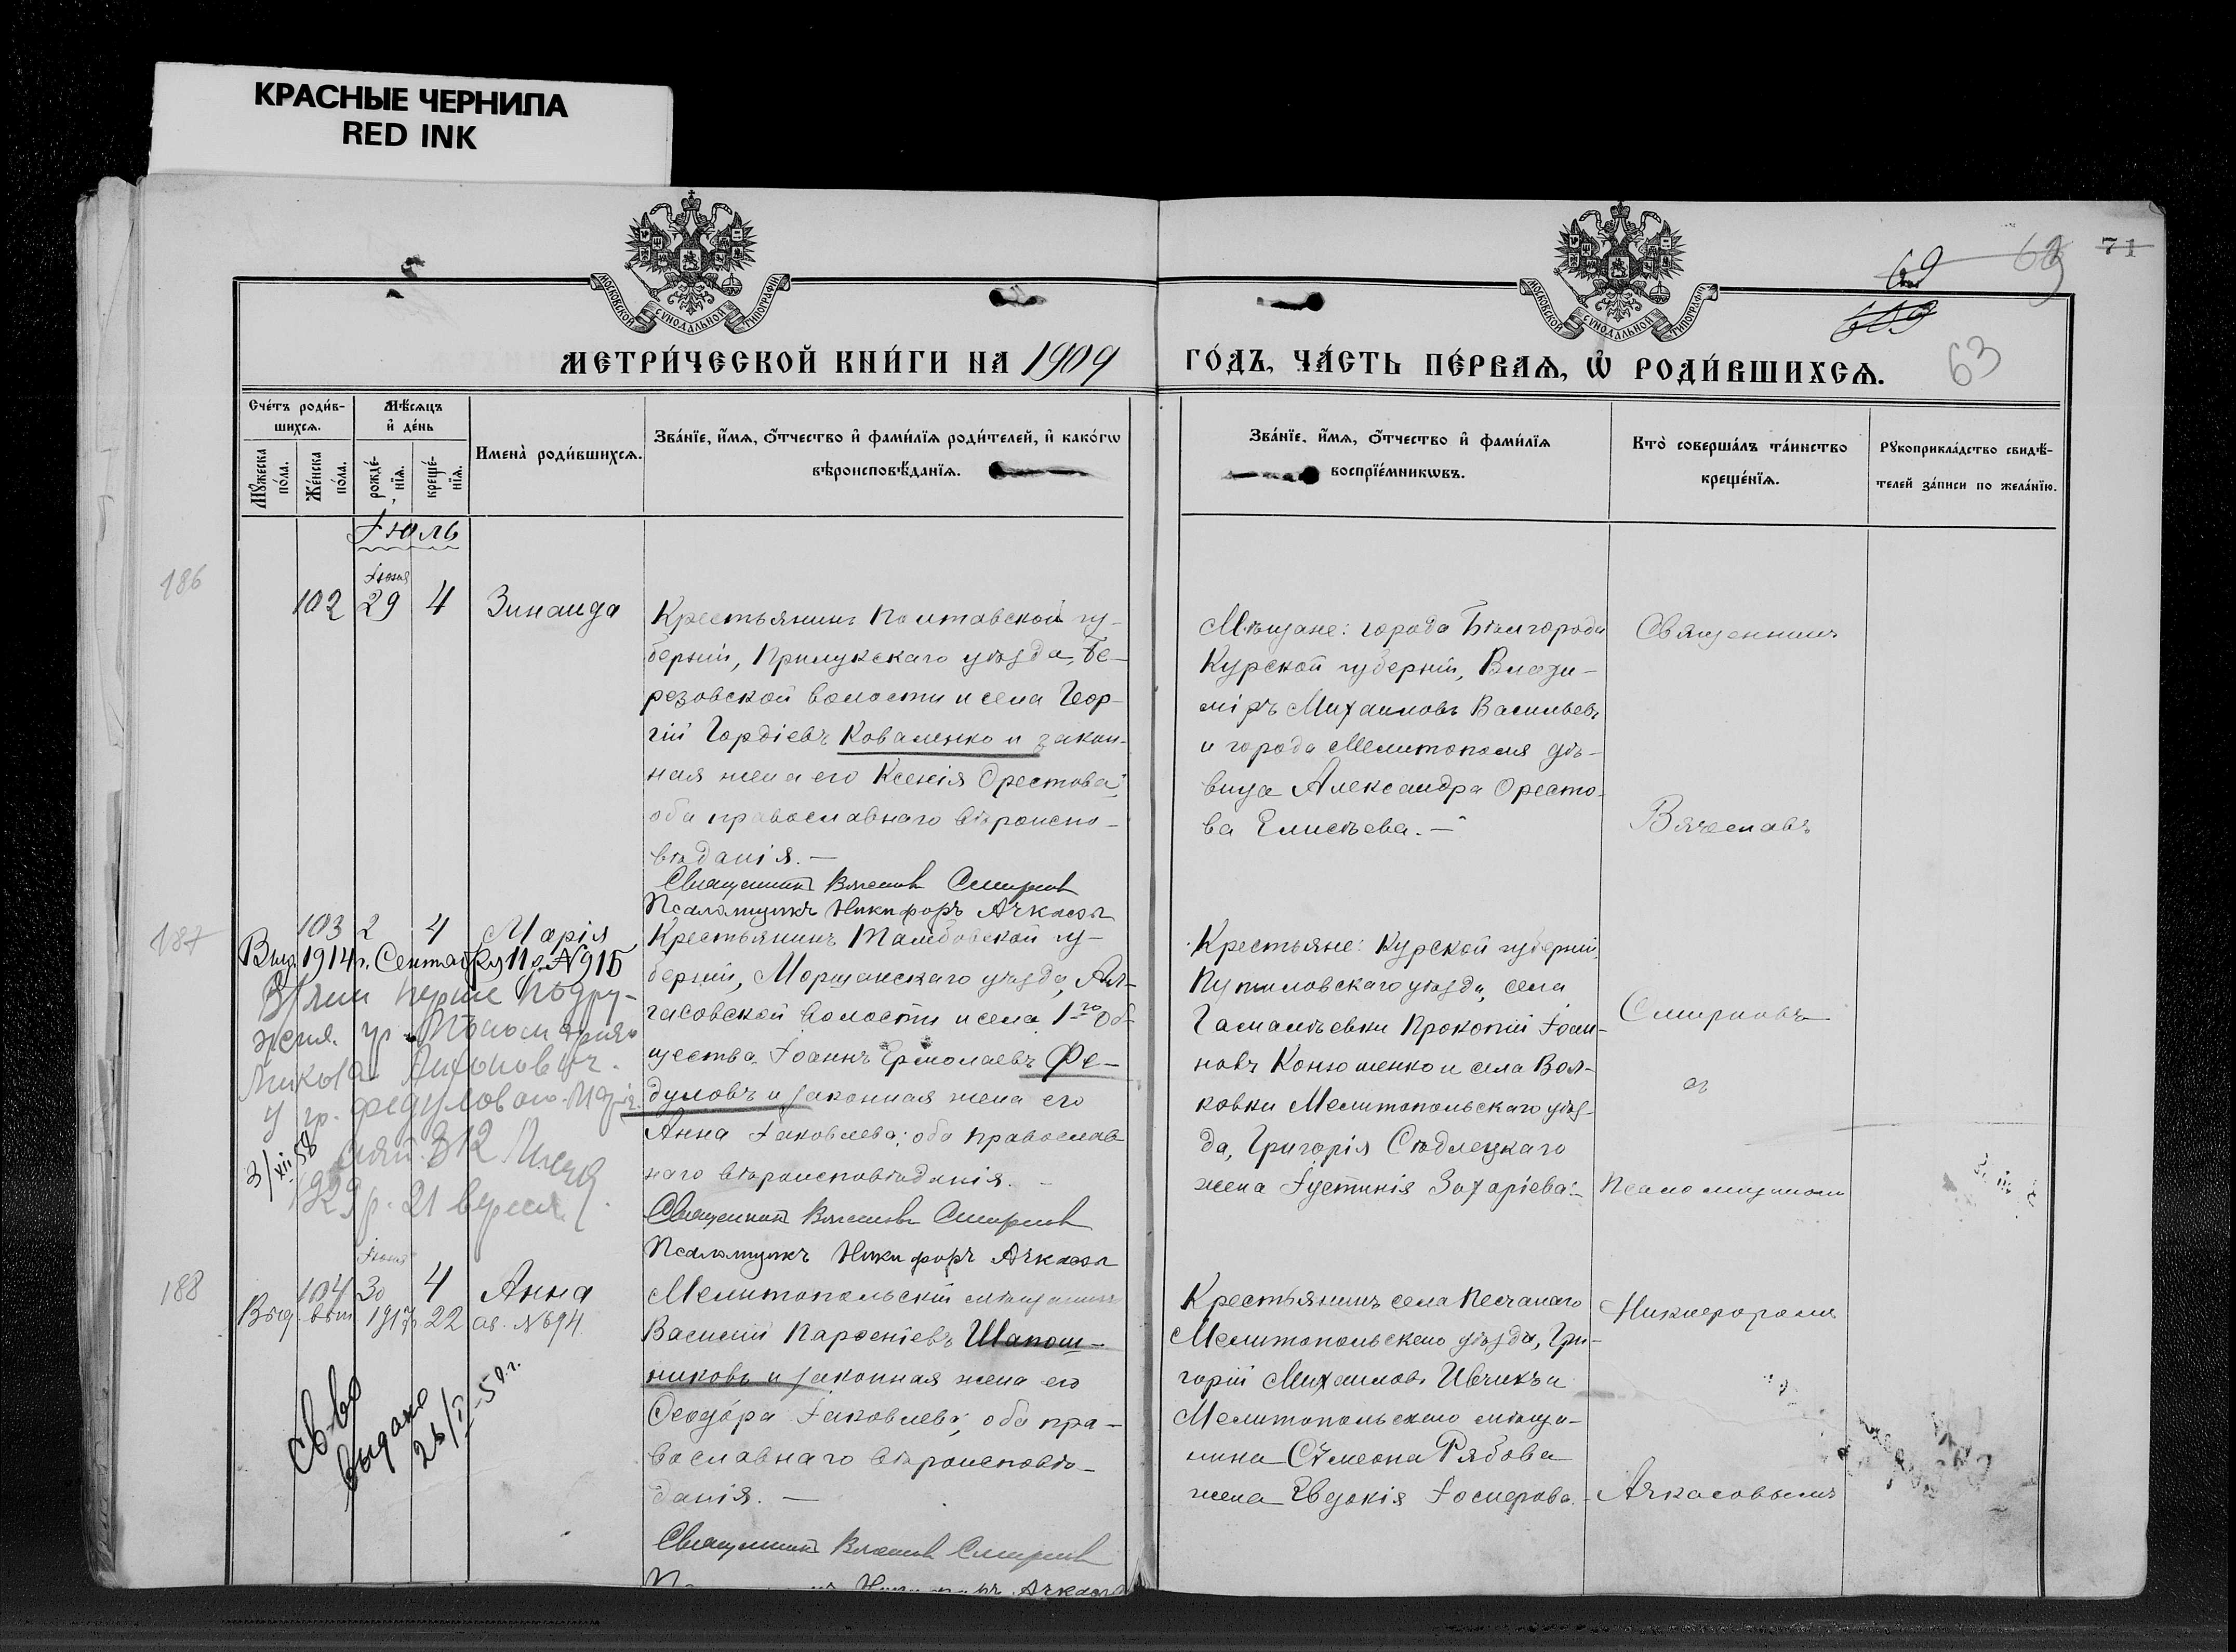 КРАСНЫЕ ЧЕРНИЛА
RED INK
МОСКОВСКОЙ СѴНОДАЛЬНОЙ ТИПОГРАФІИ
МОСКОВСКОЙ СѴНОДАЛЬНОЙ ТИПОГРАФІИ
69
69
71
63
МЕТРИ́ЧЕСКОЙ КНИ́ГИ НА 1909
ГО́ДЪ, ЧА́СТЬ ПЕ́РВАѦ, Ѡ҆ РОДИ́ВШИХСѦ.
Сче́тъ роди́в-
шихсѧ.
Мѣ́сѧцъ
и҆ де́нь
Мꙋ́жеска
по́ла.
Же́нска
по́ла.
рожде́-
нїѧ.
креще́-
нїѧ.
Имена̀ роди́вшихсѧ.
Зва́нїе, и҆́мѧ, ѻ҆́тчество и҆ фами́лїѧ роди́телей, и҆ како́гѡ
вѣроисповѣ́данїѧ.
Зва́нїе, и҆́мѧ, ѻ҆́тчество и҆ фами́лїѧ
воспрїе́мникѡвъ.
Кто̀ соверша́лъ та́инство
креще́нїѧ.
Рꙋкоприкла́дство свидѣ́-
телей за́писи по жела́нїю.
Іюль
186
Іюня
102 29 4 Зинаида
Крестьянинъ Полтавской гу-
берніи, Прилукскаго уѣзда, Бе-
резовской волости и села Геор-
гій Гордіевъ Коваленко и закон-
ная жена его Ксенія Орестова;
оба православнаго вѣроиспо-
вѣданія. —
Священникъ Вячеславъ Смирновъ
Псаломщикъ Никифоръ Ачкасовъ
Мѣщане: города Бѣлгорода
Курской губерніи, Влади-
міръ Михаиловъ Васильевъ
и города Мелитополя дѣ-
вица Александра Оресто-
ва Елисѣева. —
Священникъ
Вячеславъ
187
103 2 4 Марія
Выд. 1914 г. Сентября 11 д. № 915
3/XII 58
1929 р. 21 вересня
Крестьянинъ Тамбовской гу-
берніи, Моршанскаго уѣзда, Ал-
гасовской волости и села 1го Об-
щества Іоаннъ Ермолаевъ Фе-
дуловъ и законная жена его
Анна Іаковлева; оба православ-
наго вѣроисповѣданія. —
Священникъ Вячеславъ Смирновъ
Псаломщикъ Никифоръ Ачкасовъ
Крестьяне: Курской губерніи,
Путивловскаго уѣзда, села
Прокопій Іоан-
новъ Конюшенко и села Вол-
ковки Мелитопольскаго уѣз-
да, Григорія Сѣдлецкаго
жена Іустинія Захаріева. —
Смирновъ
съ
Псаломщикомъ
188
Іюня
104 30 4 Анна
Выд. 1917 г. 22 ав. № 694
св-во
выдано
28/I-59 г.
Мелитопольскій мѣщанинъ
Василій Парѳеніевъ Шапош-
никовъ и законная жена его
Ѳеодора Іаковлева; оба пра-
вославнаго вѣроисповѣ-
данія. —
Священникъ Вячеславъ Смирновъ
Никифоръ Ачкасовъ
Крестьянинъ села Песчанаго
Мелитопольскаго уѣзда, Гри-
горій Михаиловъ Ивчикъ и
Мелитопольскаго мѣща-
нина Сѵмеона Рябова
жена Евдокія Іосифова. —
Никифоромъ
Ачкасовымъ